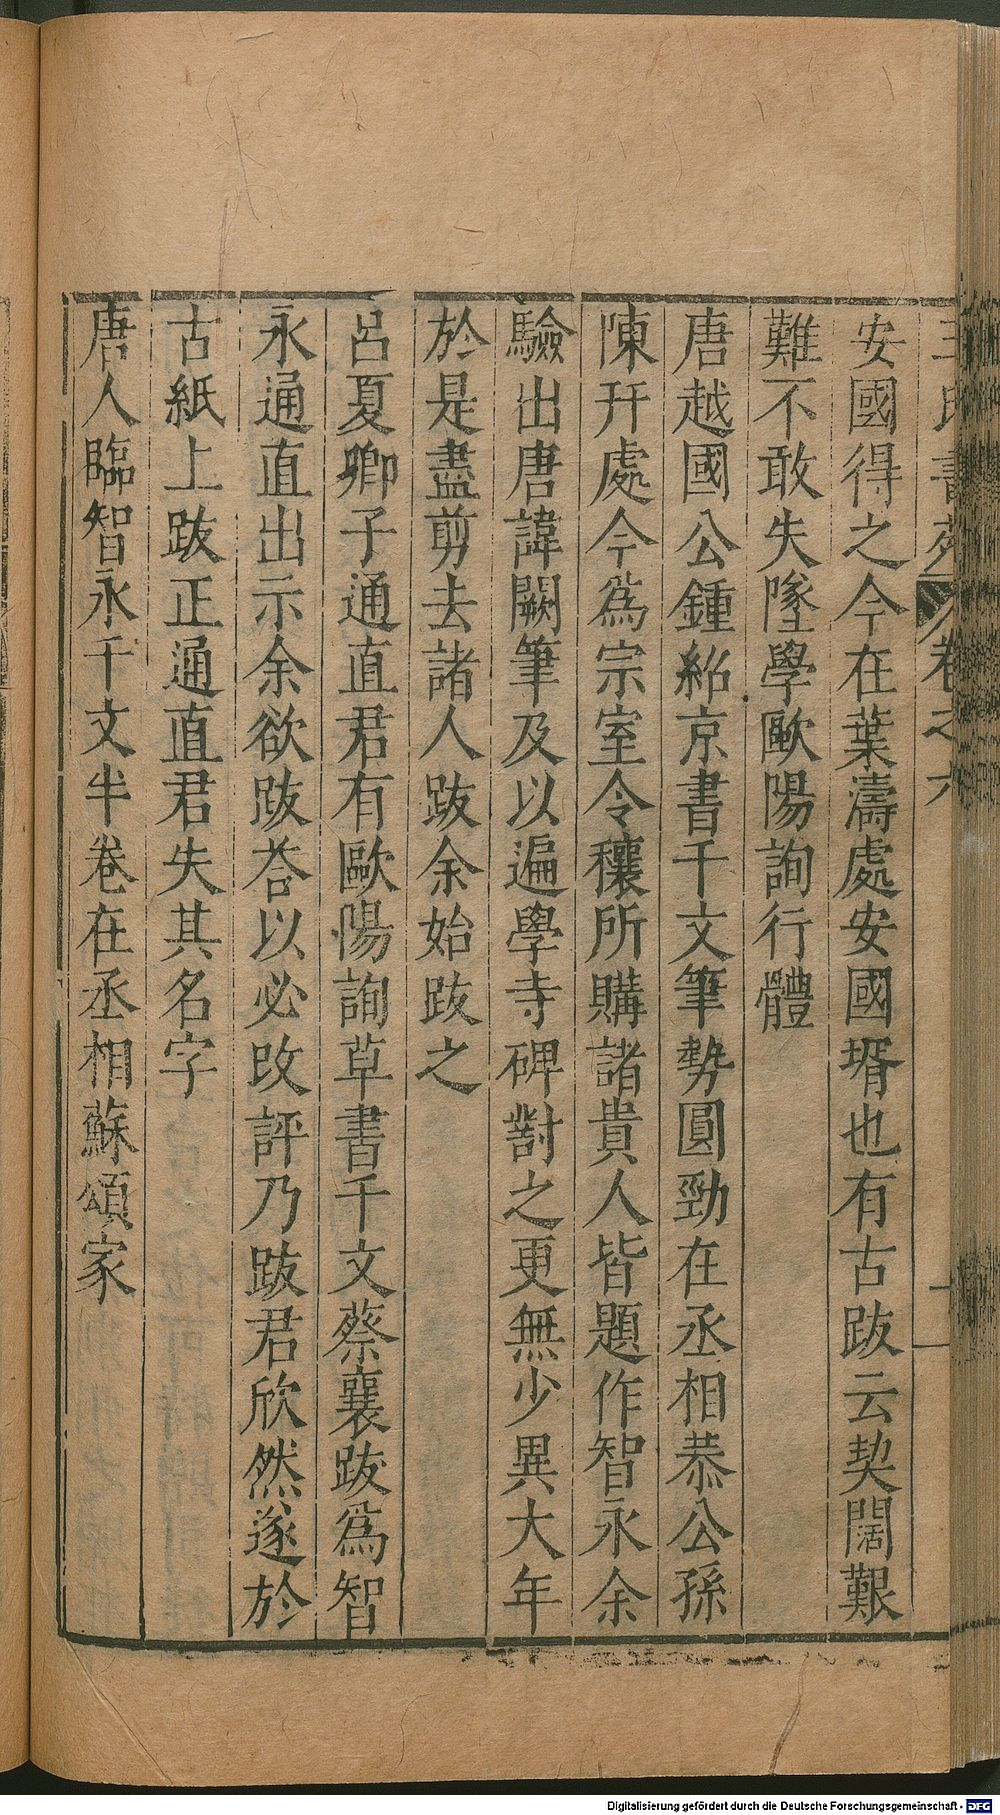 王氏書苑 卷之六
安國得之今在葉濤處安國壻也有古跋云契闊艱
難不敢失墜學歐陽詢行體
唐越國公鍾紹京書千文筆勢圓勁在丞相恭公孫
陳开處今爲宗室令穰所購諸貴人皆題作智永余
驗出唐諱闕筆及以遍學寺碑對之更無少異大年
於是盡剪去諸人跋余始跋之
呂夏卿子通直君有歐陽詢草書千文蔡襄跋爲智
永通直出示余欲跋荅以必改評乃跋君欣然遂於
古紙上跋正通直君失其名字
唐人臨智永千文半卷在丞相蘇頌家
Digitalisierung gefördert durch die Deutsche Forschungsgemeinschaft - DFG